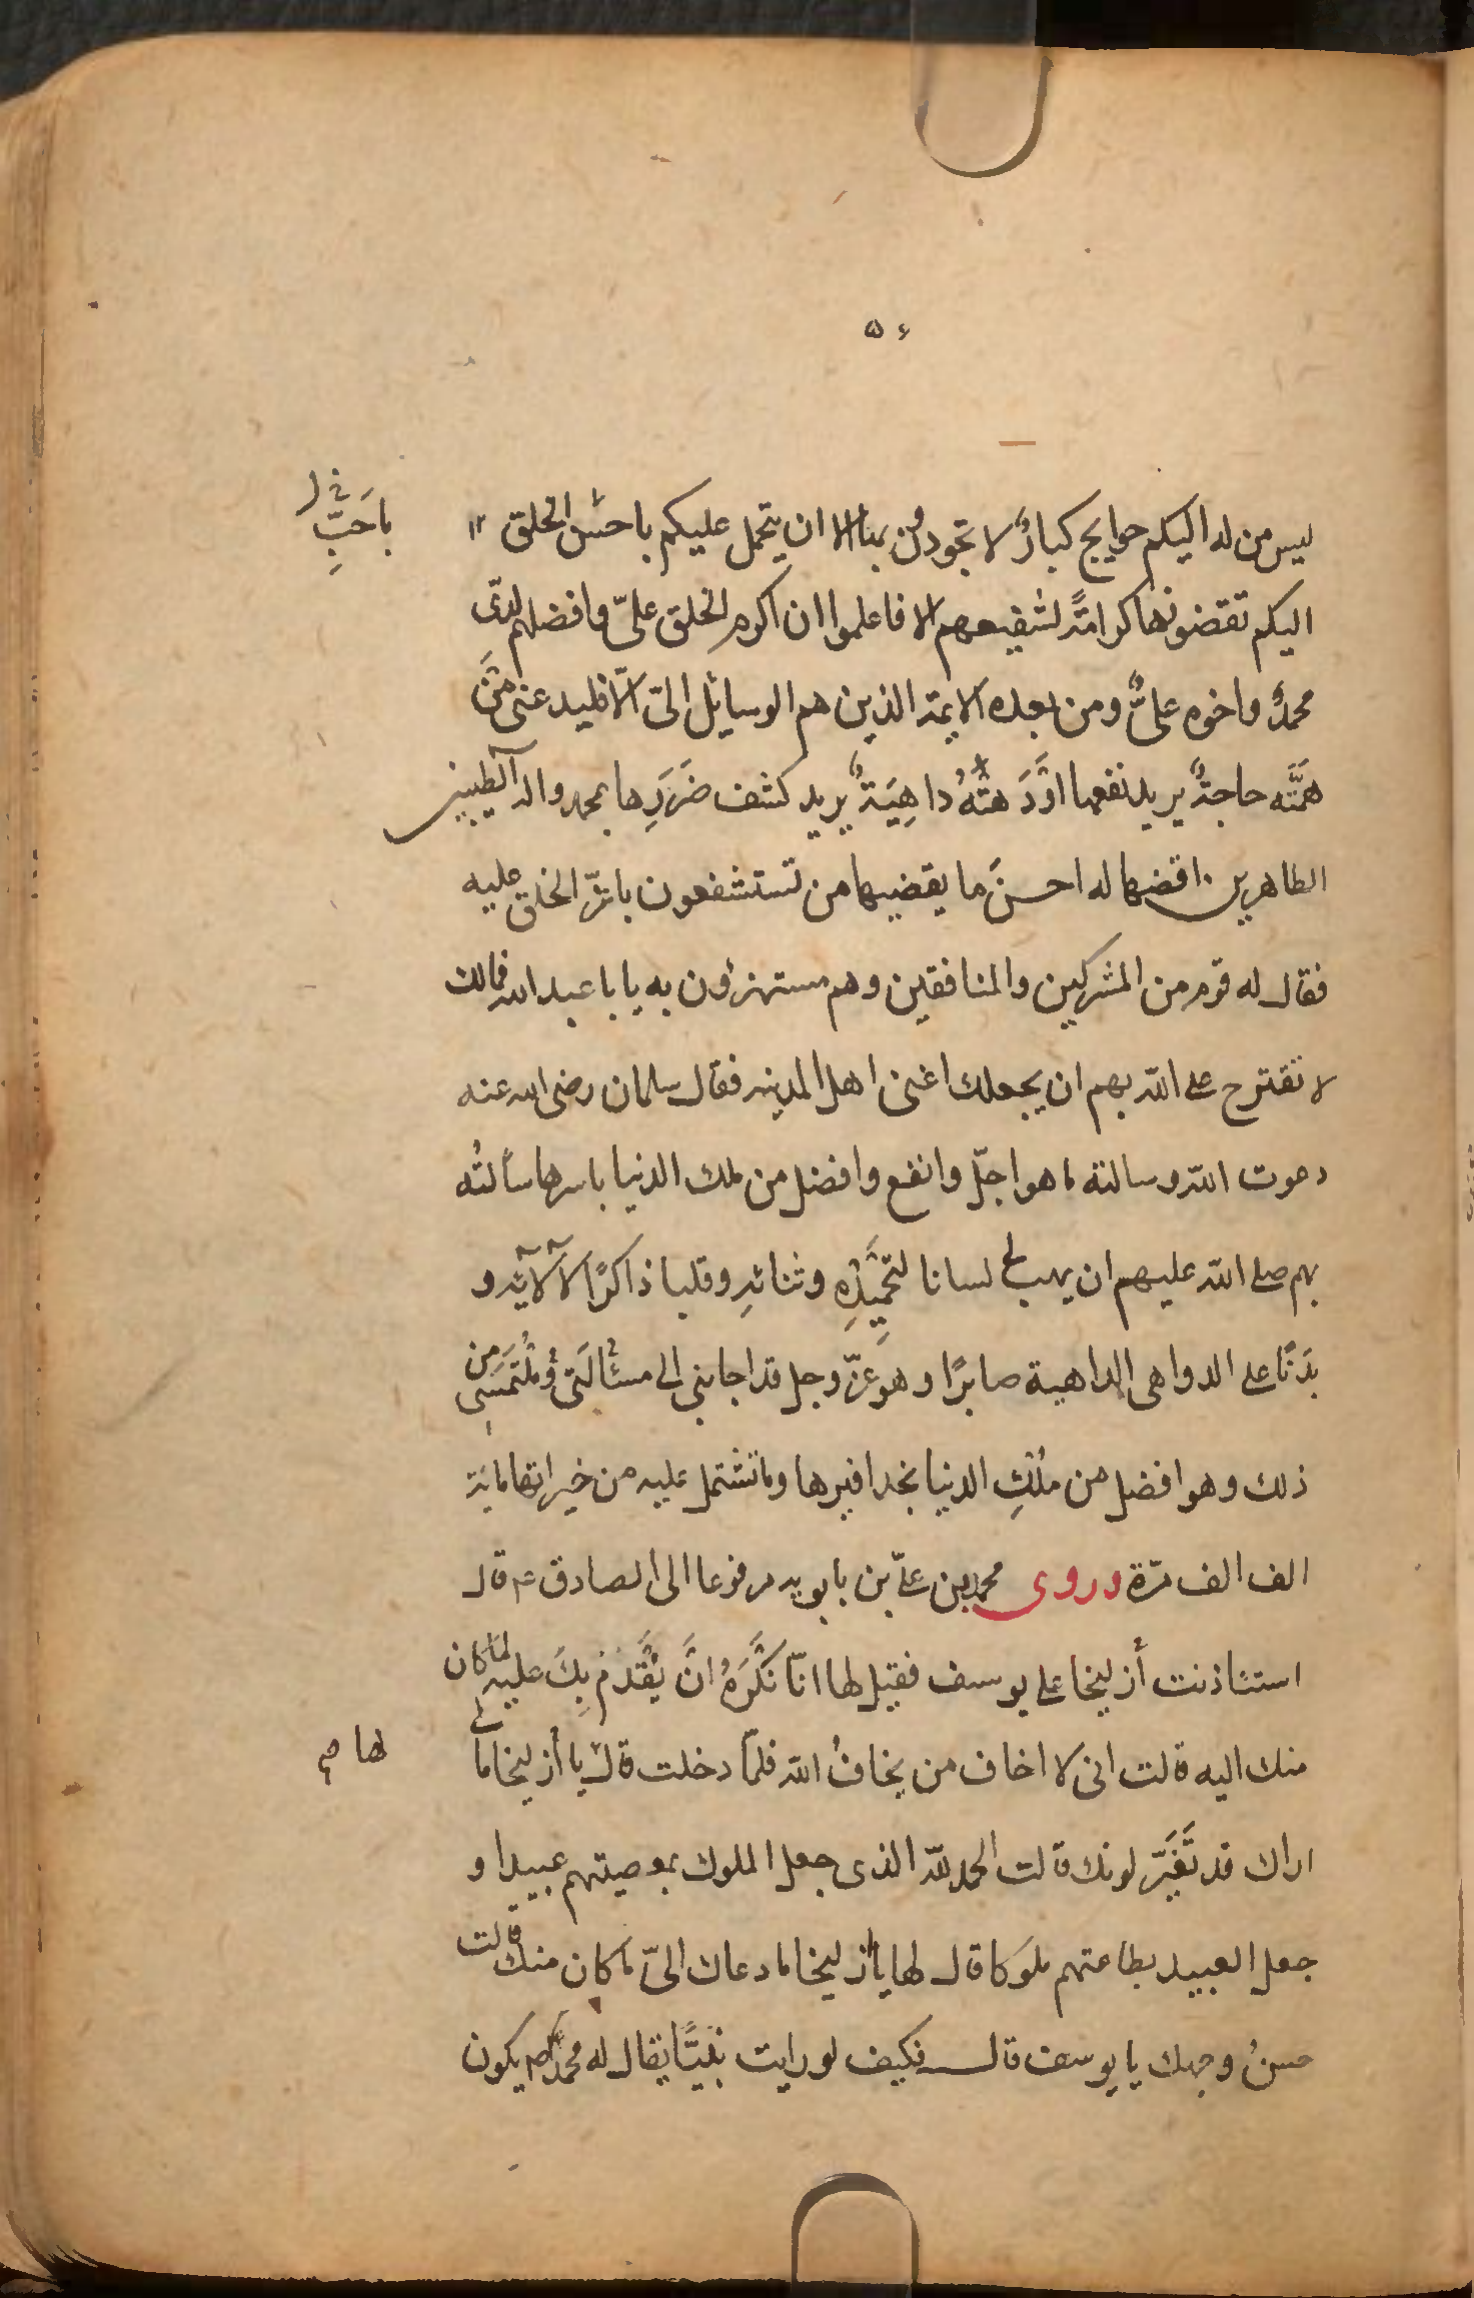 ۵۶
ليس من له اليكم حوايج كبارٌ لا تجودون بها الا ان يتحمل عليكم باحسن الخلق
باَحَبِّ
اليكم تقضونها كرامتةً لشفيعهم الا فاعلموا ان اكرم الخلق علىّ وافضلهم لدىّ
محمدٌ واخوه علىٌّ ومن بعده الايمة الذين هم الوسايل الىّ الّا فليدعنى مَن
هَمَّته حاجةٌ يريد نفعها اوَدَهَتْهُ داهِيَةٌ يريد كشف ضَرَرِها بمحمد واله الطيبين
الطاهرين اقضها له احسنَ ما يقضيها من تستشفعون باعزّ الخلق عليه
فقال له قوم من المشركين والمنافقين وهم مستهزؤن به يا باعبدالله فمالك
لا تقترح على اللّه بهم ان يجعلك اغنى اهل المدينه فقال سلمان رضى الله عنه
دعوت اللّه وسالته ما هو اجلّ وانفع وافضل من ملك الدنيا باسرها سألتُه
بهم صلى اللّه عليهم ان يهب لى لسانا لتحميدِهِ وثنائهِ وقلبا ذاكرًا لآلآئه و
بدَنًا على الدواهى الداهية صابرًا وهو عزّ وجل قد اجابنى الى مسئالَتى وُمُلْتَمَسِى من
ذلك وهو افضل من مُلْكِ الدنيا بحدافيرها وما تشتمل عليه من خيراتها مائة
الف الف مرّة وروى محمد بن علىّ بن بابويه مرفوعا الى الصادق ع قال
استئاذنت أزليخا على يوسف فقيل لها انّا نَكْرَهُ انَّ يُقَدَّمَ بِكَ عليه لما كان
منك اليه قالت انى لا اخاف من يخافُ اللّه فلمّا دخلت قال يا أزليخا مالى
لها م
اراك قد تَغَيَّر لونك قالت الحمد للّه الذى جعل الملوك بمعصيتهم عبيدا و
جعل العبيد بطاعتهم ملوَكا قال لها يا ازليخا ما دعاك الىّ ما كان منك قالت
حسنُ وجهك يا يوسف قال فكيف لو رايت نبيًّا يقال له محمدٌ ص يكون